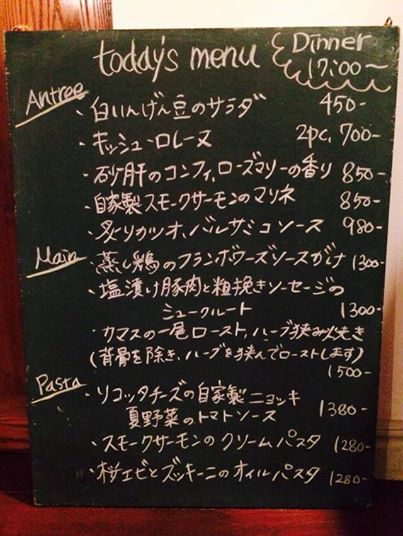 today's menu
Dinner
17:00〜
Antree
・白いんげん豆のサラダ 450-
・キッシュ・ロレーヌ 2pc, 700-
・砂肝のコンフィ、ローズマリーの香り 850-
・自家製スモークサーモンのマリネ 850-
・炙りカツオ、バルサミコソース 980-
Main
・蒸し鶏のフランボワーズソースがけ 1300-
・塩漬け豚肉と粗挽きソーセージの
シュークルート 1300-
・カマスの一尾ロースト、ハーブ挟み焼き
(背骨を除き、ハーブを挟んでローストします)
1500-
Pasta
・リコッタチーズの自家製ニョッキ
夏野菜のトマトソース 1380-
・スモークサーモンのクリームパスタ 1280-
・桜エビとズッキーニのオイルパスタ 1280-